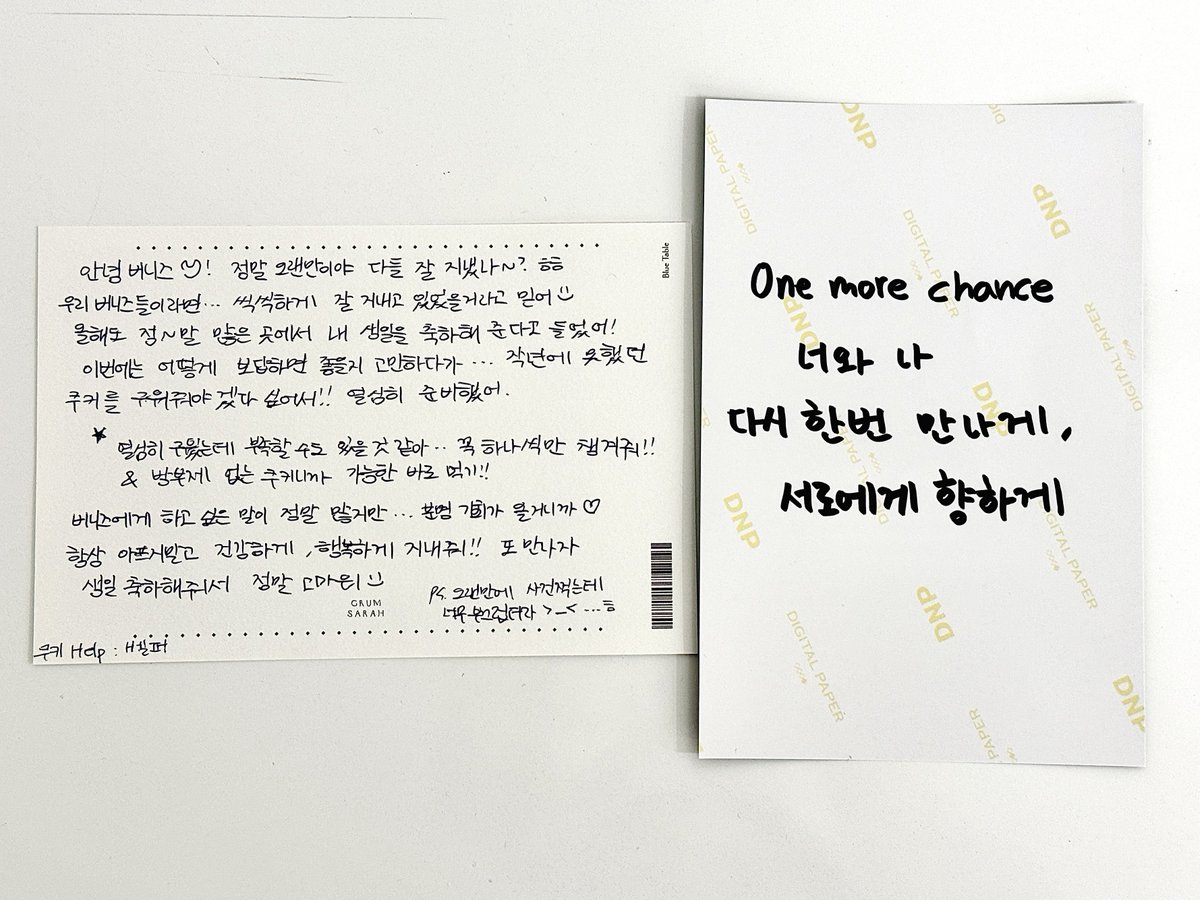 안녕 버니즈♡! 정말 오랜만이야 다들 잘 지냈나~? ㅎㅎ
우리 버니즈들이라면... 씩씩하게 잘 지내고 있을거라고 믿어
올해도 정~말 많은 곳에서 내 생일을 축하해 준다고 들었어!
이번에는 어떻게 보답하면 좋을지 고민하다가... 작년에 못했던
쿠키를 구워줘야겠다 싶어서!! 열심히 준비했어.
★ 열심히 구웠는데 부족할 수도 있을 것 같아.. 꼭 하나씩만 챙겨줘!!
& 방부제 없는 쿠키니까 가능한 바로 먹기!!
버니즈에게 하고 싶은 말이 정말 많지만... 분명 기회가 올거니까♡
항상 아프지말고 건강하게, 행복하게 지내줘!! 또 만나자
생일 축하해줘서 정말 고마워
P.S. 오랜만에 사진찍는데
너무 부끄럽더라 >_< ...ㅎ
GRUM
SARAH
쿠키 Help : H헬퍼
Blue Table
One more chance
너와 나
다시 한번 만나게,
서로에게 향하게
DNP
DIGITAL PAPER
DNP
DIGITAL PAPER
DNP
DIGITAL PAPER
DNP
DIGITAL PAPER
DNP
DIGITAL PAPER
DNP
DIGITAL PAPER
DNP